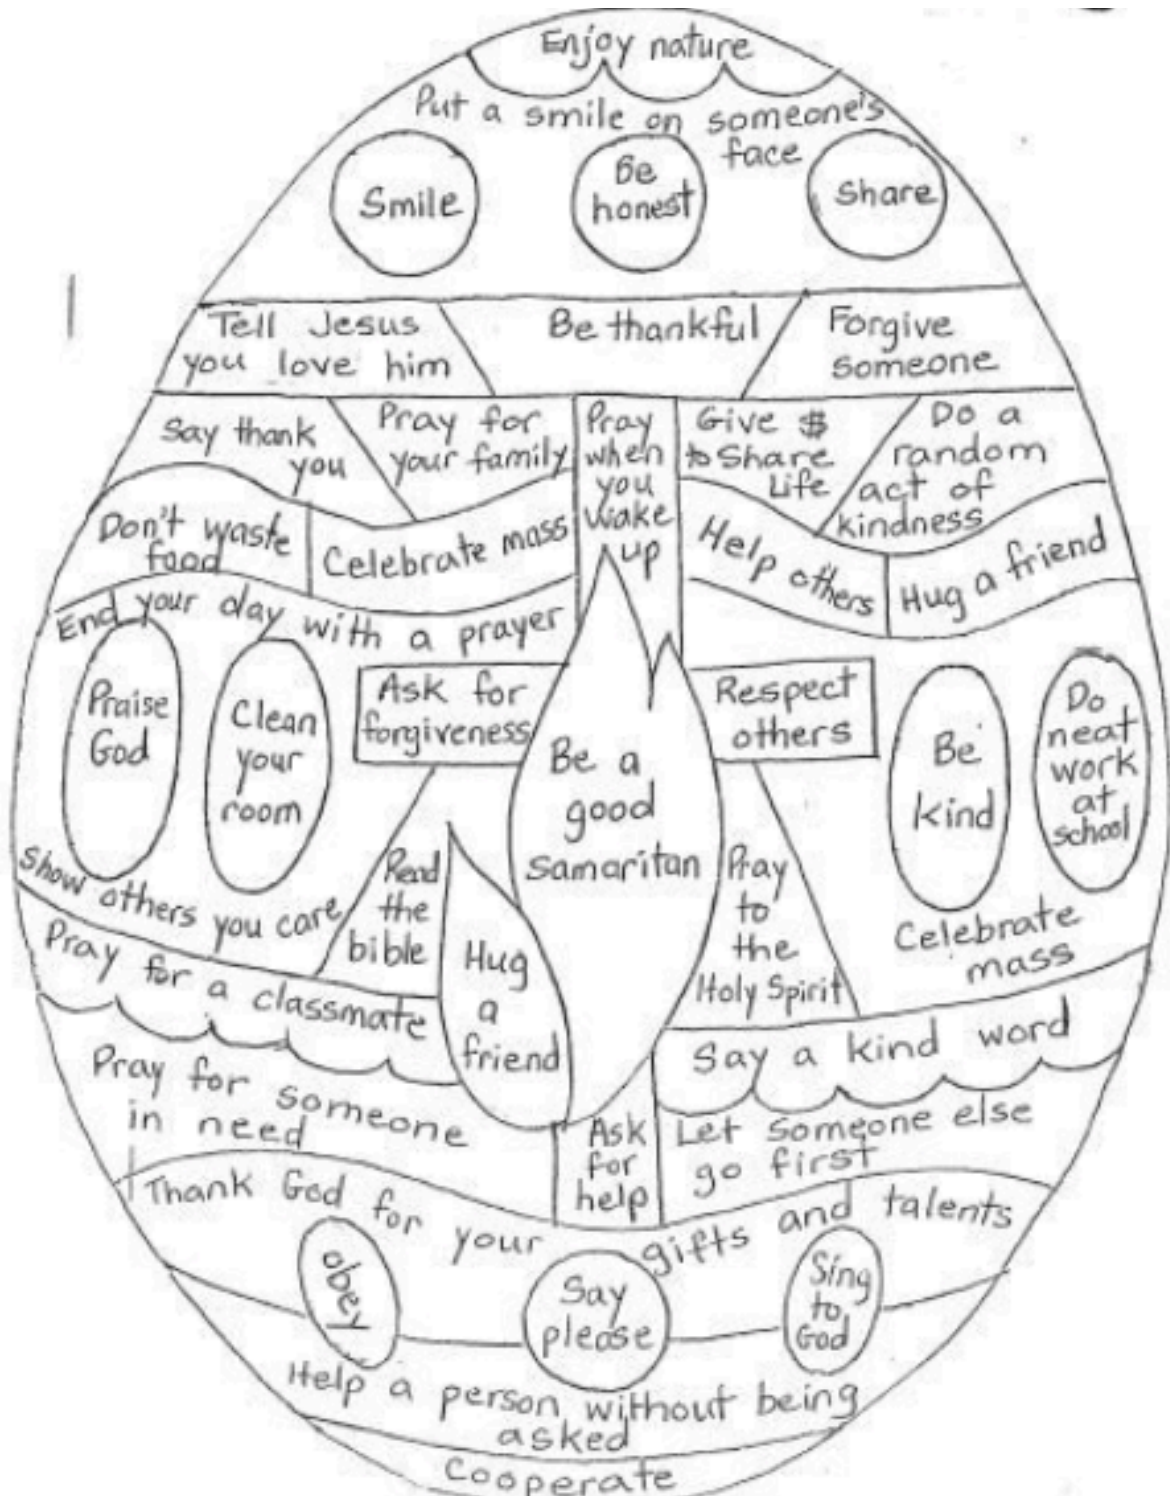 Enjoy nature
Put a smile on someone's
face
Smile
Be
honest
Share
Tell Jesus
you love him
Be thankful
Forgive
someone
Say thank
you
Pray for
your family
Pray
when
you
wake
up
Give $
to Share
Life
Do a
random
act of
kindness
Don't waste
food
Celebrate mass
Help others
Hug a friend
End your day with a prayer
Praise
God
Clean
your
room
Ask for
forgiveness
Respect
others
Be
kind
Do
neat
work
at
school
Be a
good
Samaritan
Show others you care
Read
the
bible
Pray
to
the
Holy Spirit
Celebrate
mass
Pray for a classmate
Hug
a
friend
Say a kind word
Pray for someone
in need
Ask
for
help
Let someone else
go first
Thank God for your gifts and talents
obey
Say
please
Sing
to
God
Help a person without being
asked
Cooperate